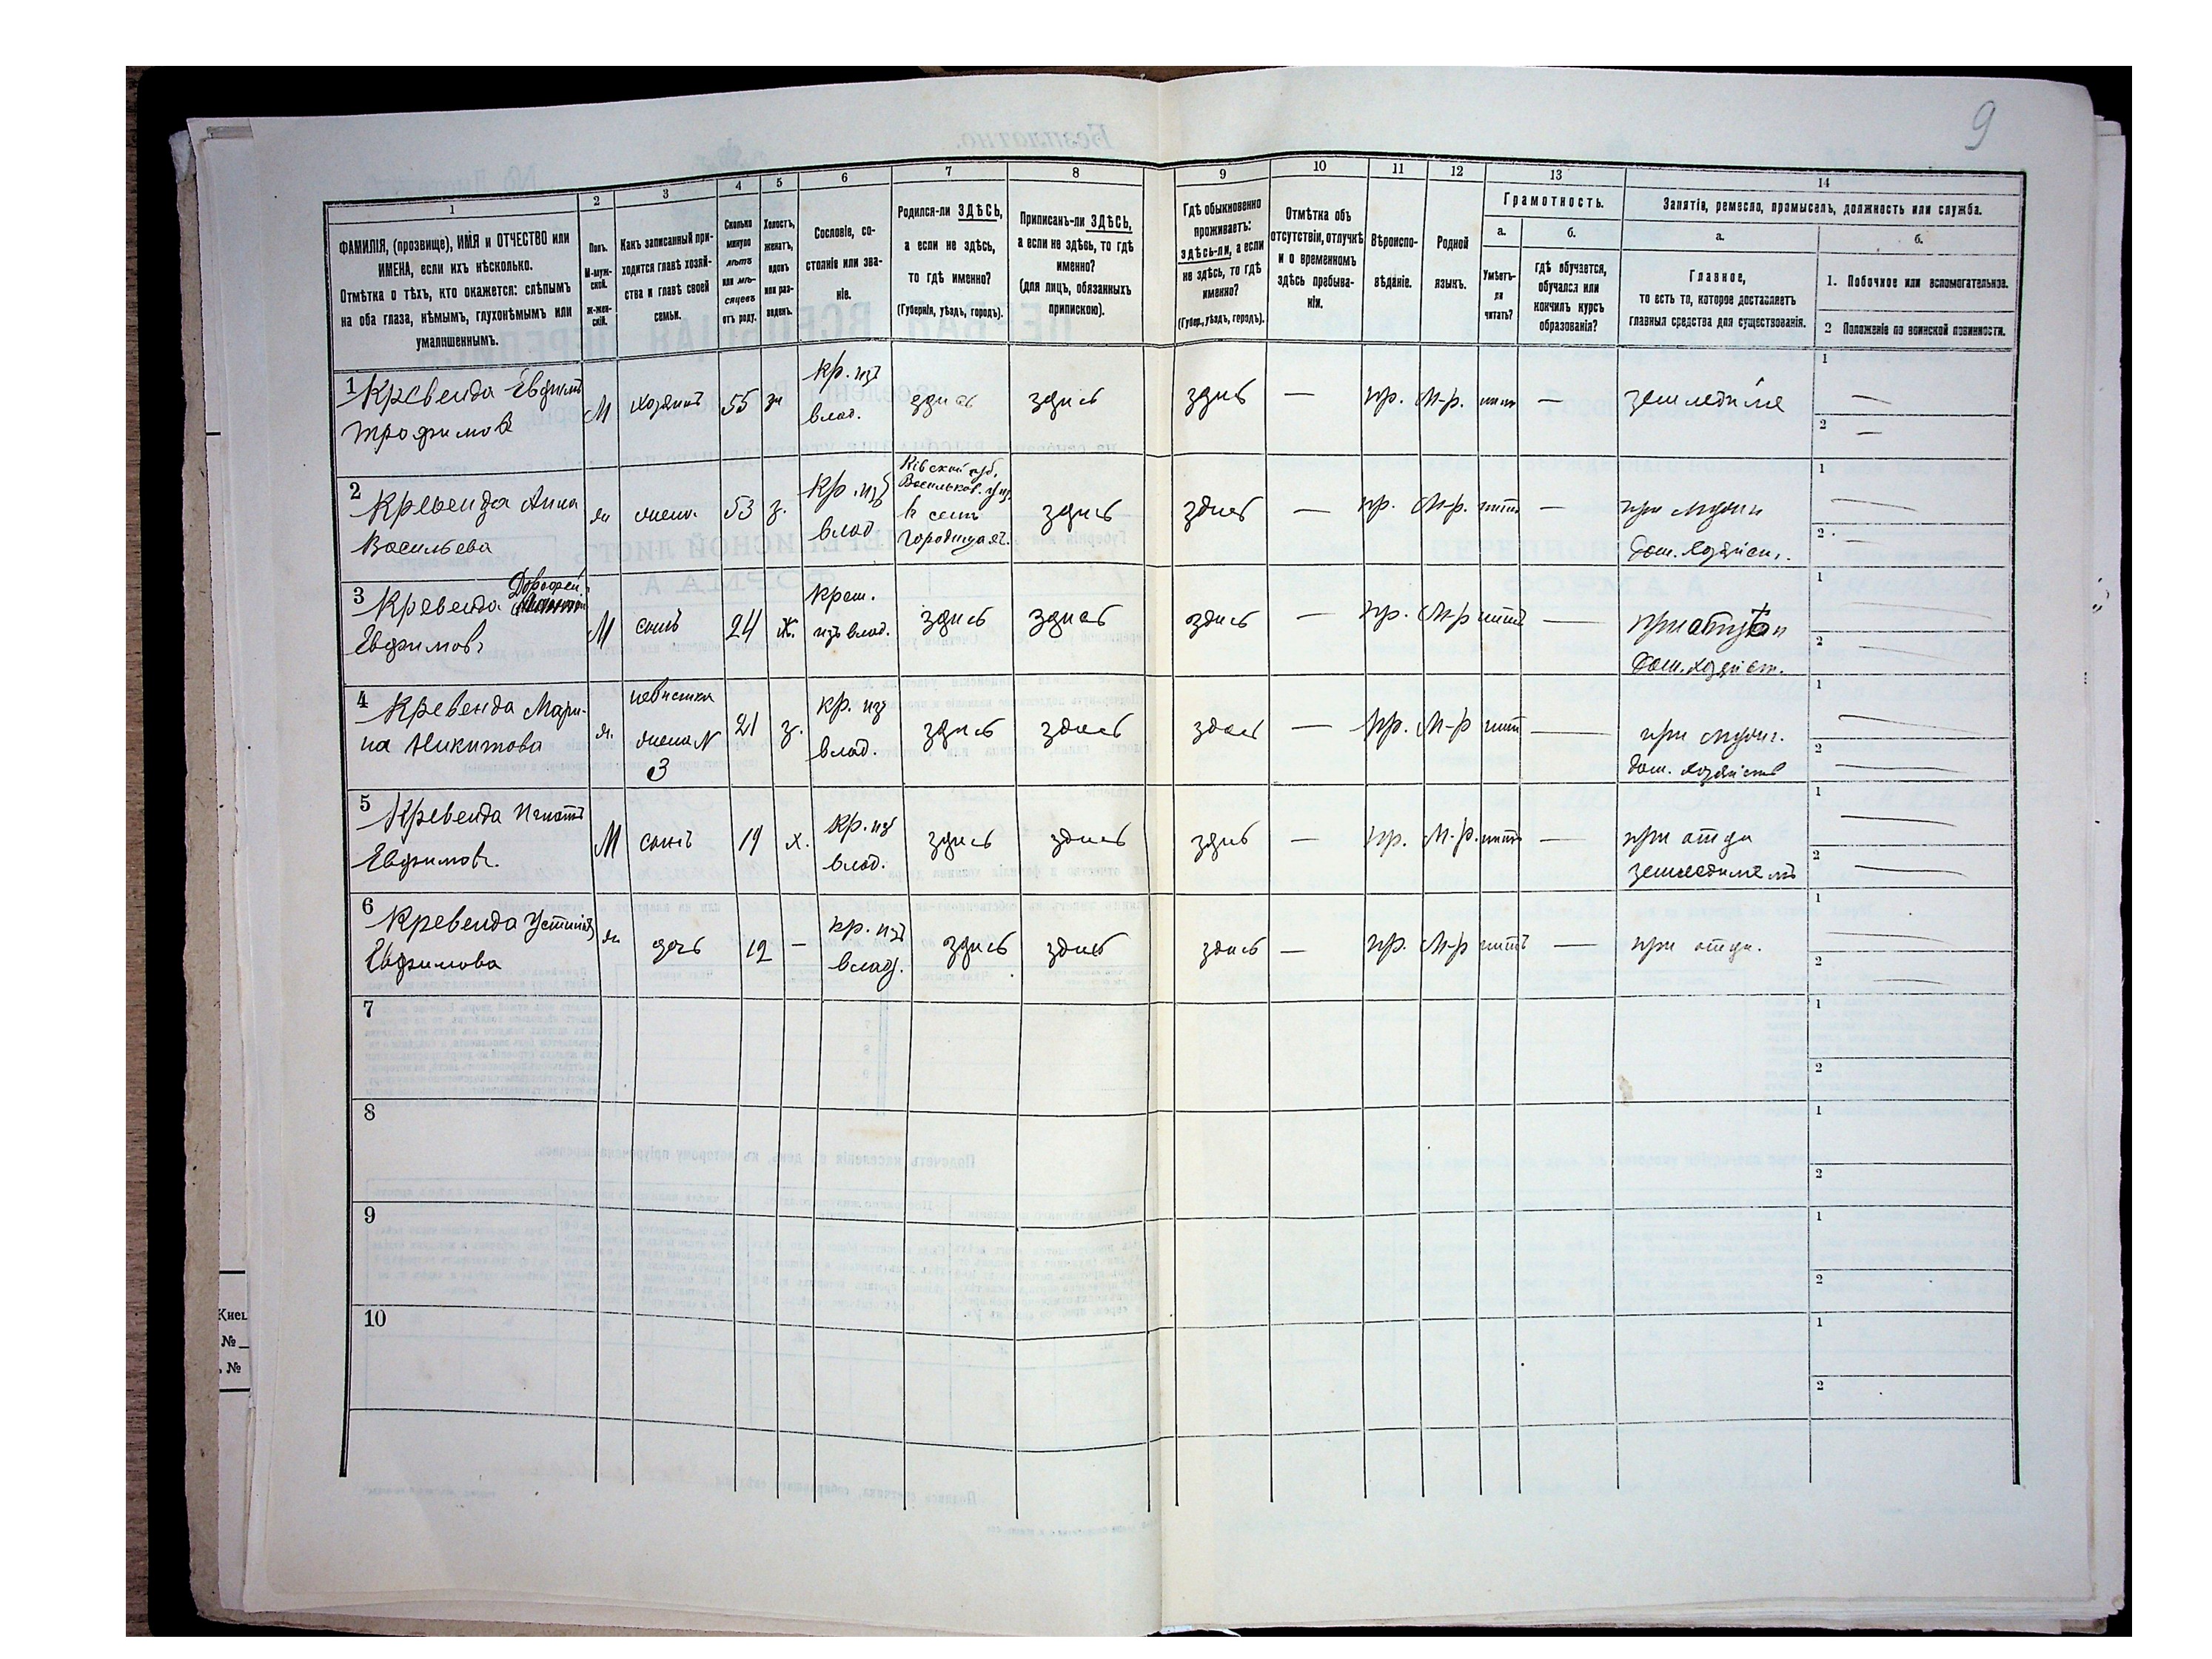 9
1
2
3
4
5
6
7
8
9
10
11
12
13
14
ФАМИЛІЯ, (прозвище), ИМЯ и ОТЧЕСТВО или
ИМЕНА, если ихъ нѣсколько.
Отмѣтка о тѣхъ, кто окажется: слѣпымъ
на оба глаза, нѣмымъ, глухонѣмымъ или
умалишеннымъ.
Полъ.
М-муж-
ской.
ж-жен-
скій.
Какъ записанный при-
ходится главѣ хозяй-
ства и главѣ своей
семьи.
Сколько
минуло
лѣтъ
или мѣ-
сяцевъ
отъ роду.
Холостъ,
женатъ,
вдовъ
или раз-
веденъ.
Сословіе, со-
стояніе или зва-
ніе.
Родился-ли ЗДѢСЬ,
а если не здѣсь,
то гдѣ именно?
(Губернія, уѣздъ, городъ).
Приписанъ-ли ЗДѢСЬ,
а если не здѣсь, то гдѣ
именно?
(для лицъ, обязанныхъ
припискою).
Гдѣ обыкновенно
проживаетъ:
здѣсь-ли, а если
не здѣсь, то гдѣ
именно?
(Губер., уѣздъ, городъ).
Отмѣтка объ
отсутствіи, отлучкѣ
и о временномъ
здѣсь пребыва-
ніи.
Вѣроиспо-
вѣданіе.
Родной
языкъ.
Грамотность.
а.
Умѣетъ-
ли
читать?
б.
гдѣ обучается,
обучался или
кончилъ курсъ
образованія?
Занятіе, ремесло, промыселъ, должность или служба.
а.
Главное,
то есть то, которое доставляетъ
главныя средства для существованія.
б.
1. Побочное или вспомогательное.
2 Положеніе по воинской повинности.
1 Кревенда Евфимъ
Трофимовъ
М хозяинъ 55 ж
кр. изъ
влад.
здѣсь здѣсь здѣсь — пр. М-р. нѣтъ — земледѣліе
1 —
2 —
2 Кревенда Анна
Васильева
ж жена 53 з.
кр. изъ
влад
Кіевской губ.
Васильков. у.
Городища
здѣсь здѣсь — пр. М-р. нѣтъ —
при мужѣ
дом. хозяйст.
1 —
2 —
3 Кревенда
Евфимов.
М сынъ 24 ж.
крест.
изъ влад.
здѣсь здѣсь здѣсь — пр. М-р нѣтъ —
при отцѣ
дом. хозяйст.
1 —
2 —
4 Кревенда Мари-
на Никитова
ж.
невѣстка
жена N
3
21 з.
кр. изъ
влад.
здѣсь здѣсь здѣсь — пр. М-р нѣтъ —
при мужѣ.
дом. хозяйств
1 —
2 —
5 Кревенда Игнатъ
Евфимов.
М сынъ 19 х.
кр. изъ
влад.
здѣсь здѣсь здѣсь — пр. М-р. нѣтъ —
при отцѣ
земледѣліемъ
1 —
2 —
6 Кревенда Устинія
Евфимова
ж дочь 12 —
кр. изъ
влад.
здѣсь здѣсь здѣсь — пр. М-р нѣтъ — при отцѣ.
1 —
2 —
7
1
2
8
1
2
9
1
2
10
1
2
№
№